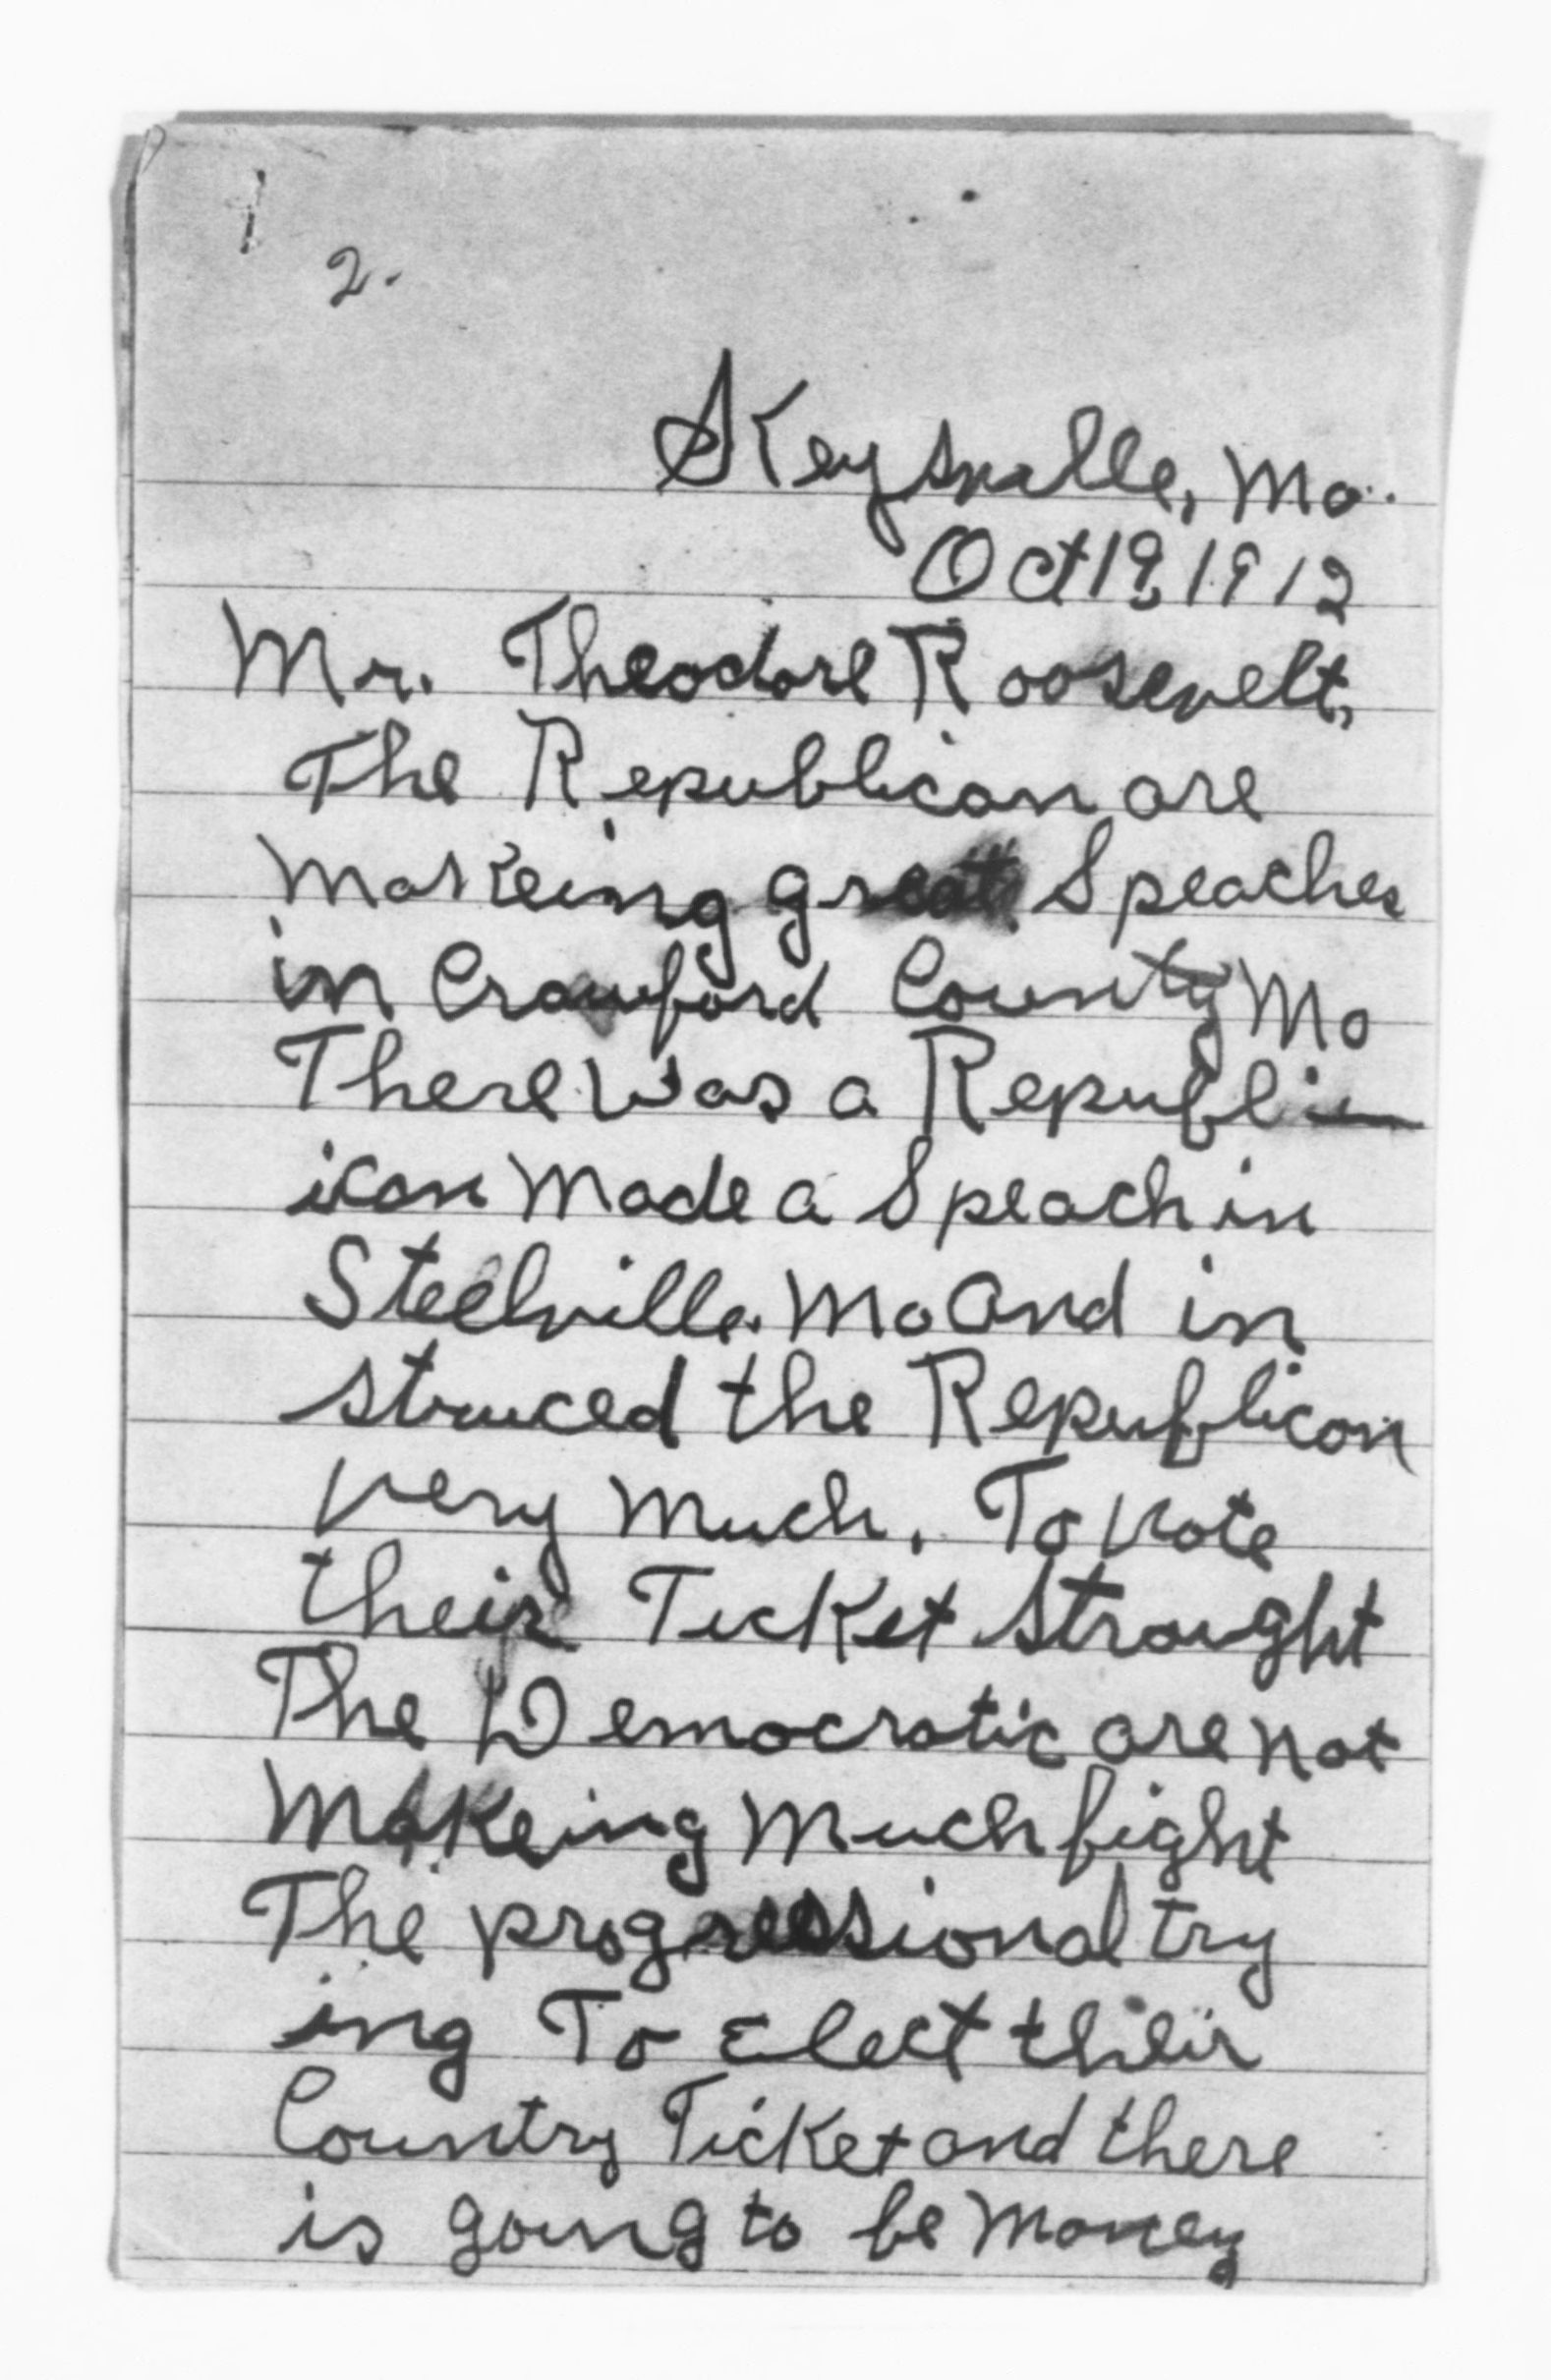 1
2.
Keysville, Mo.
Oct 19, 1912
Mr. Theodore Roosevelt,
The Republican are
Makeing great Speaches
in Crawford County Mo
There Was a Republi
ican Made a Speach in
Steelville. Mo And in
struced the Republican
very Much. To vote
their Ticket Straught
The Democratic are not
Makeing Much fight
The progressional try
ing To Elect their
Country Ticket and there
is going to be Money